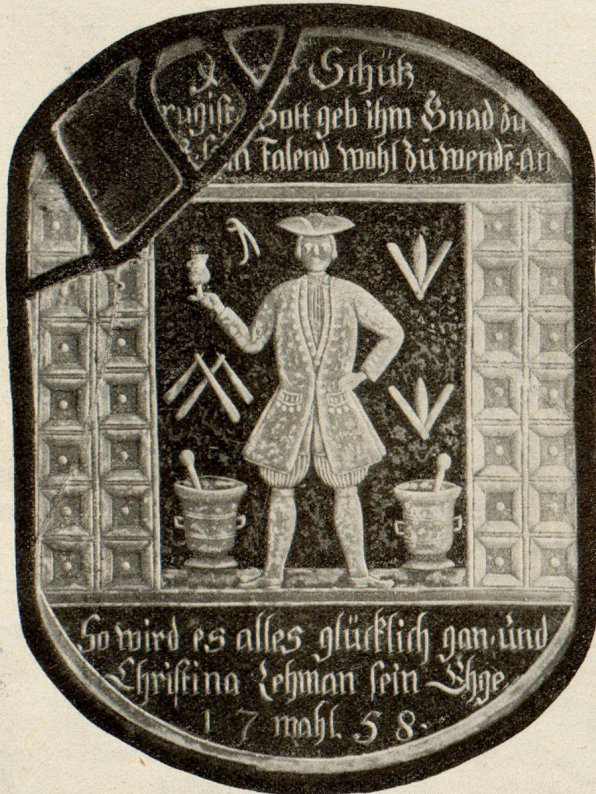 Schütz
rugist Gott geb ihm Gnad zu
Talend wohl zu wende an
So wird es alles glücklich gan, und
Christina Lehman sein Ehge
17 mahl. 58.